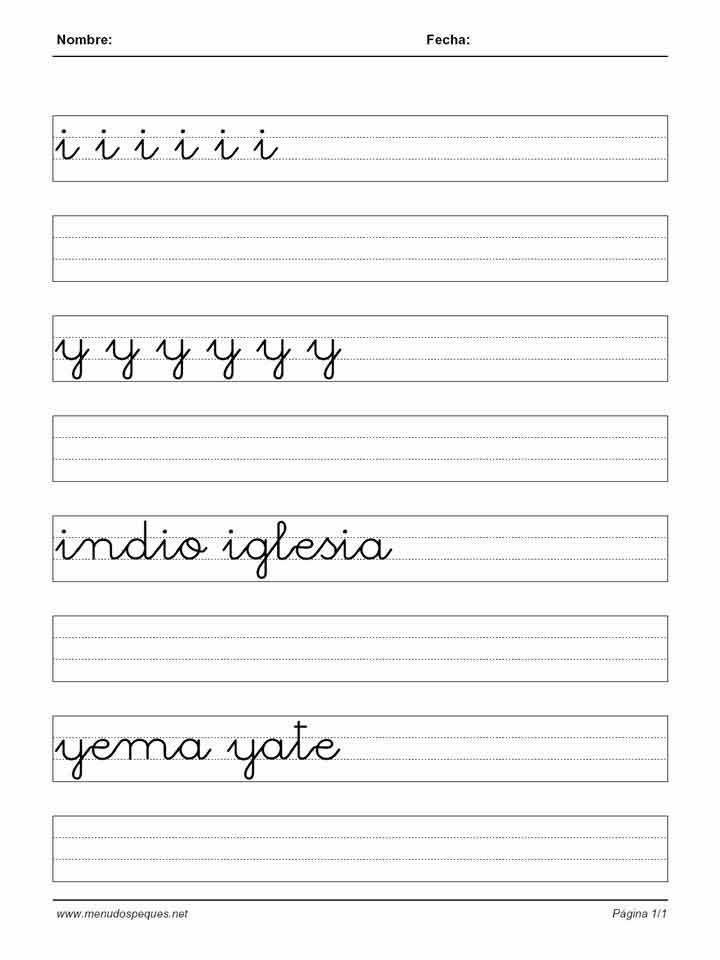 Nombre: Fecha:
i i i i i i
y y y y y y
indio iglesia
yema yate
www.menudospeques.net Página 1/1